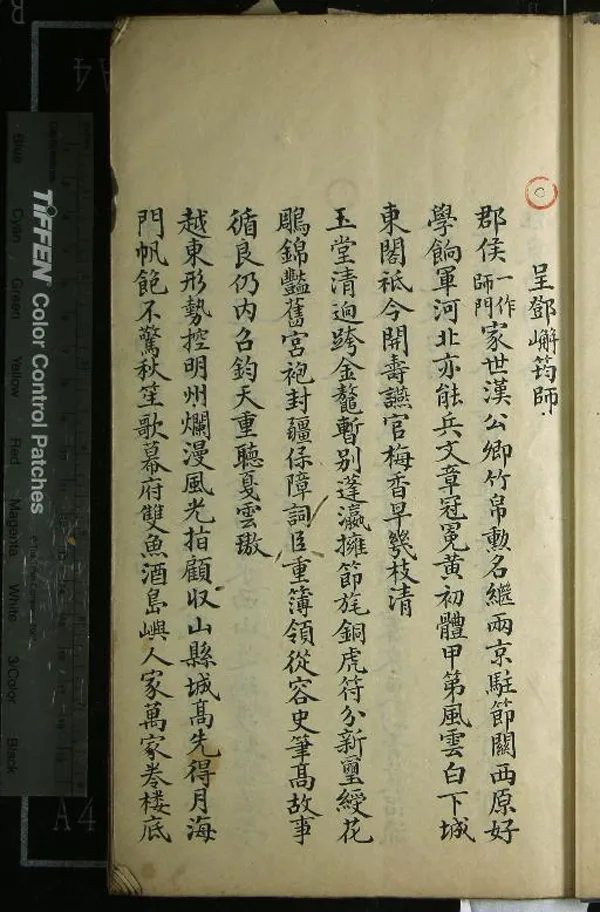 呈鄧嶰筠師
郡侯一作師門家世漢公卿竹帛勲名繼兩京駐節關西原好
學餉軍河北亦能兵文章冠冕黃初體甲第風雲白下城
東閣祗今開壽讌官梅香早幾枝清
玉堂清逈跨金鼇暫别蓬瀛擁節旄銅虎符分新璽綬花
鵰錦豔舊宮袍封疆保障詞臣重簿領從容史筆高故事
循良仍内召鈞天重聽戞雲璈
越東形勢控明州爛漫風光指顧収山縣城高先得月海
門帆飽不驚秋笙歌幕府雙魚酒島嶼人家萬家卷楼底
TIFFEN Color Control Patches
Blue
Cyan
Green
Yellow
Red
Magenta
White
3/Color
Black
A4